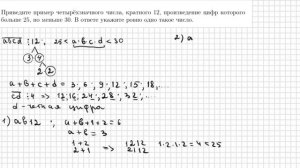 Приведите пример четырёхзначного числа, кратного 12, произведение цифр которого
больше 25, но меньше 30. В ответе укажите ровно одно такое число.
abcd ⋮ 12, 25 < a·b·c·d < 30
2) a
3 4
2 2
a + b + c + d = 3, 6, 9, 12, 15, 18, ..
cd ⋮ 4 ⇒ 12; 16; 24, 28, 32, ..
d - четная цифра
1) ab12 : a + b + 1 + 2 = 6
a + b = 3
1 + 2
2 + 1
⇒
1212
2112
1·2·1·2 = 4 = 25